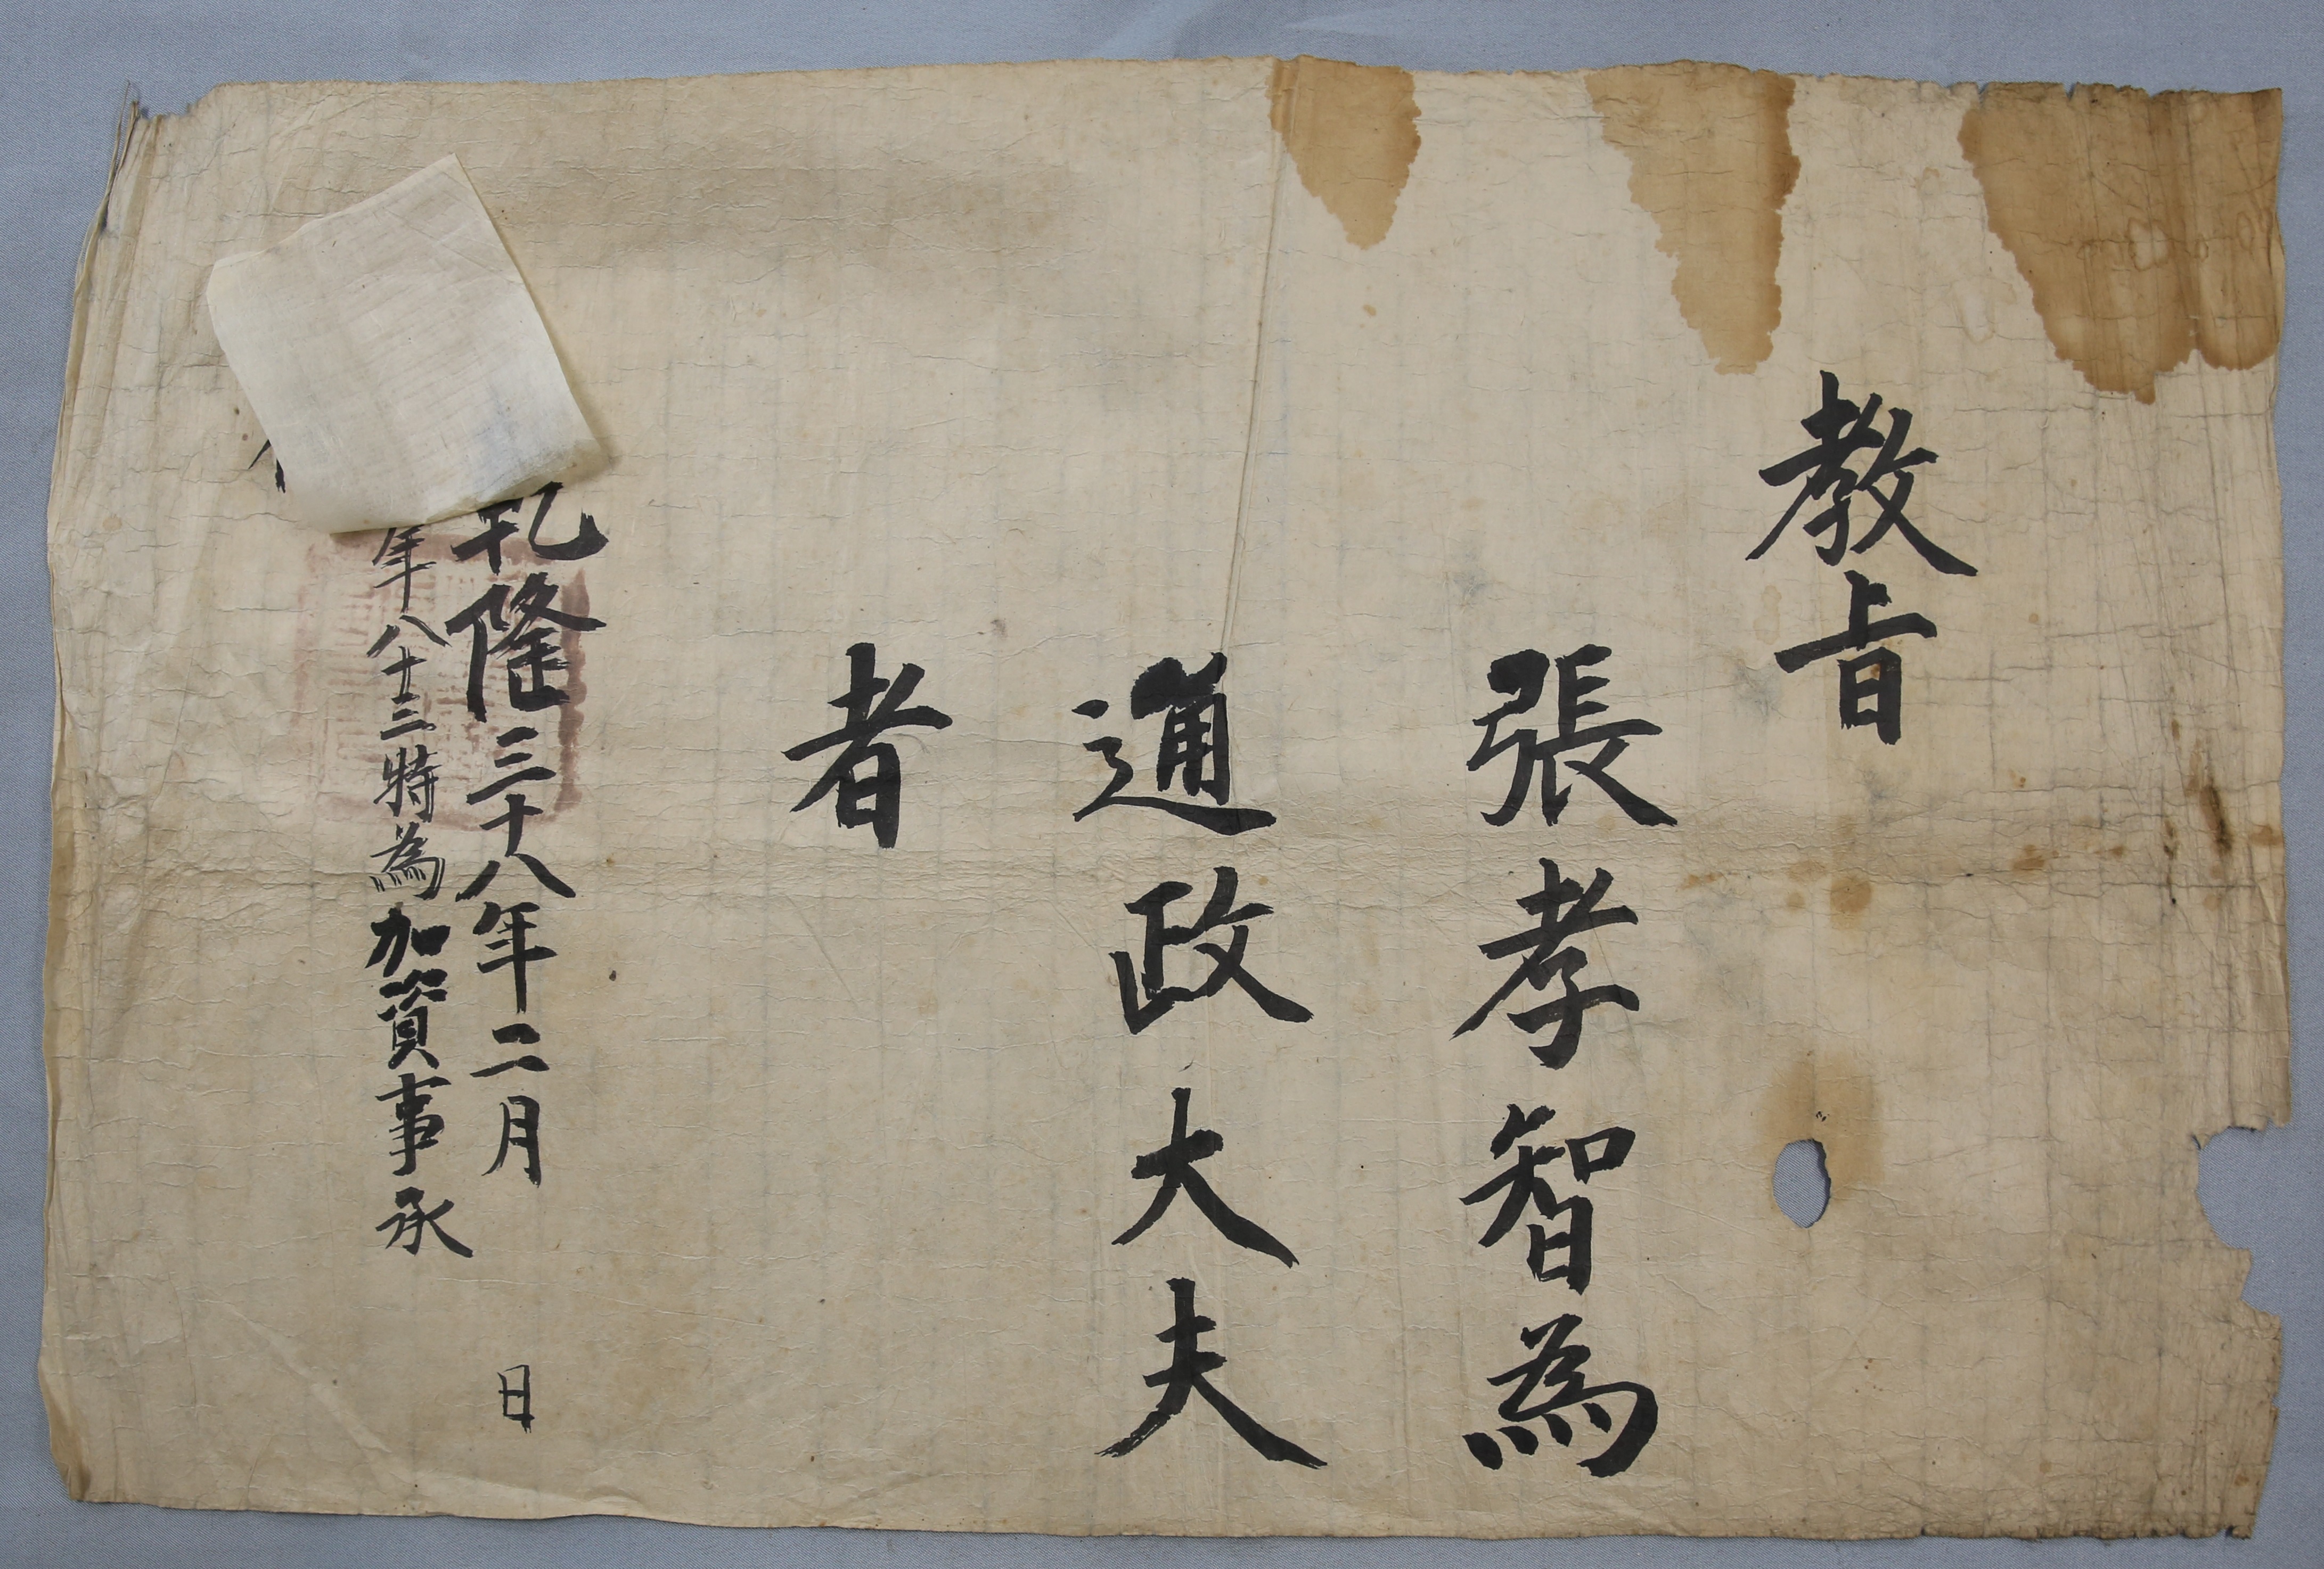 教旨
張孝智為
通政大夫
者
乾隆三十八年二月 日
年八十三特為加資事承